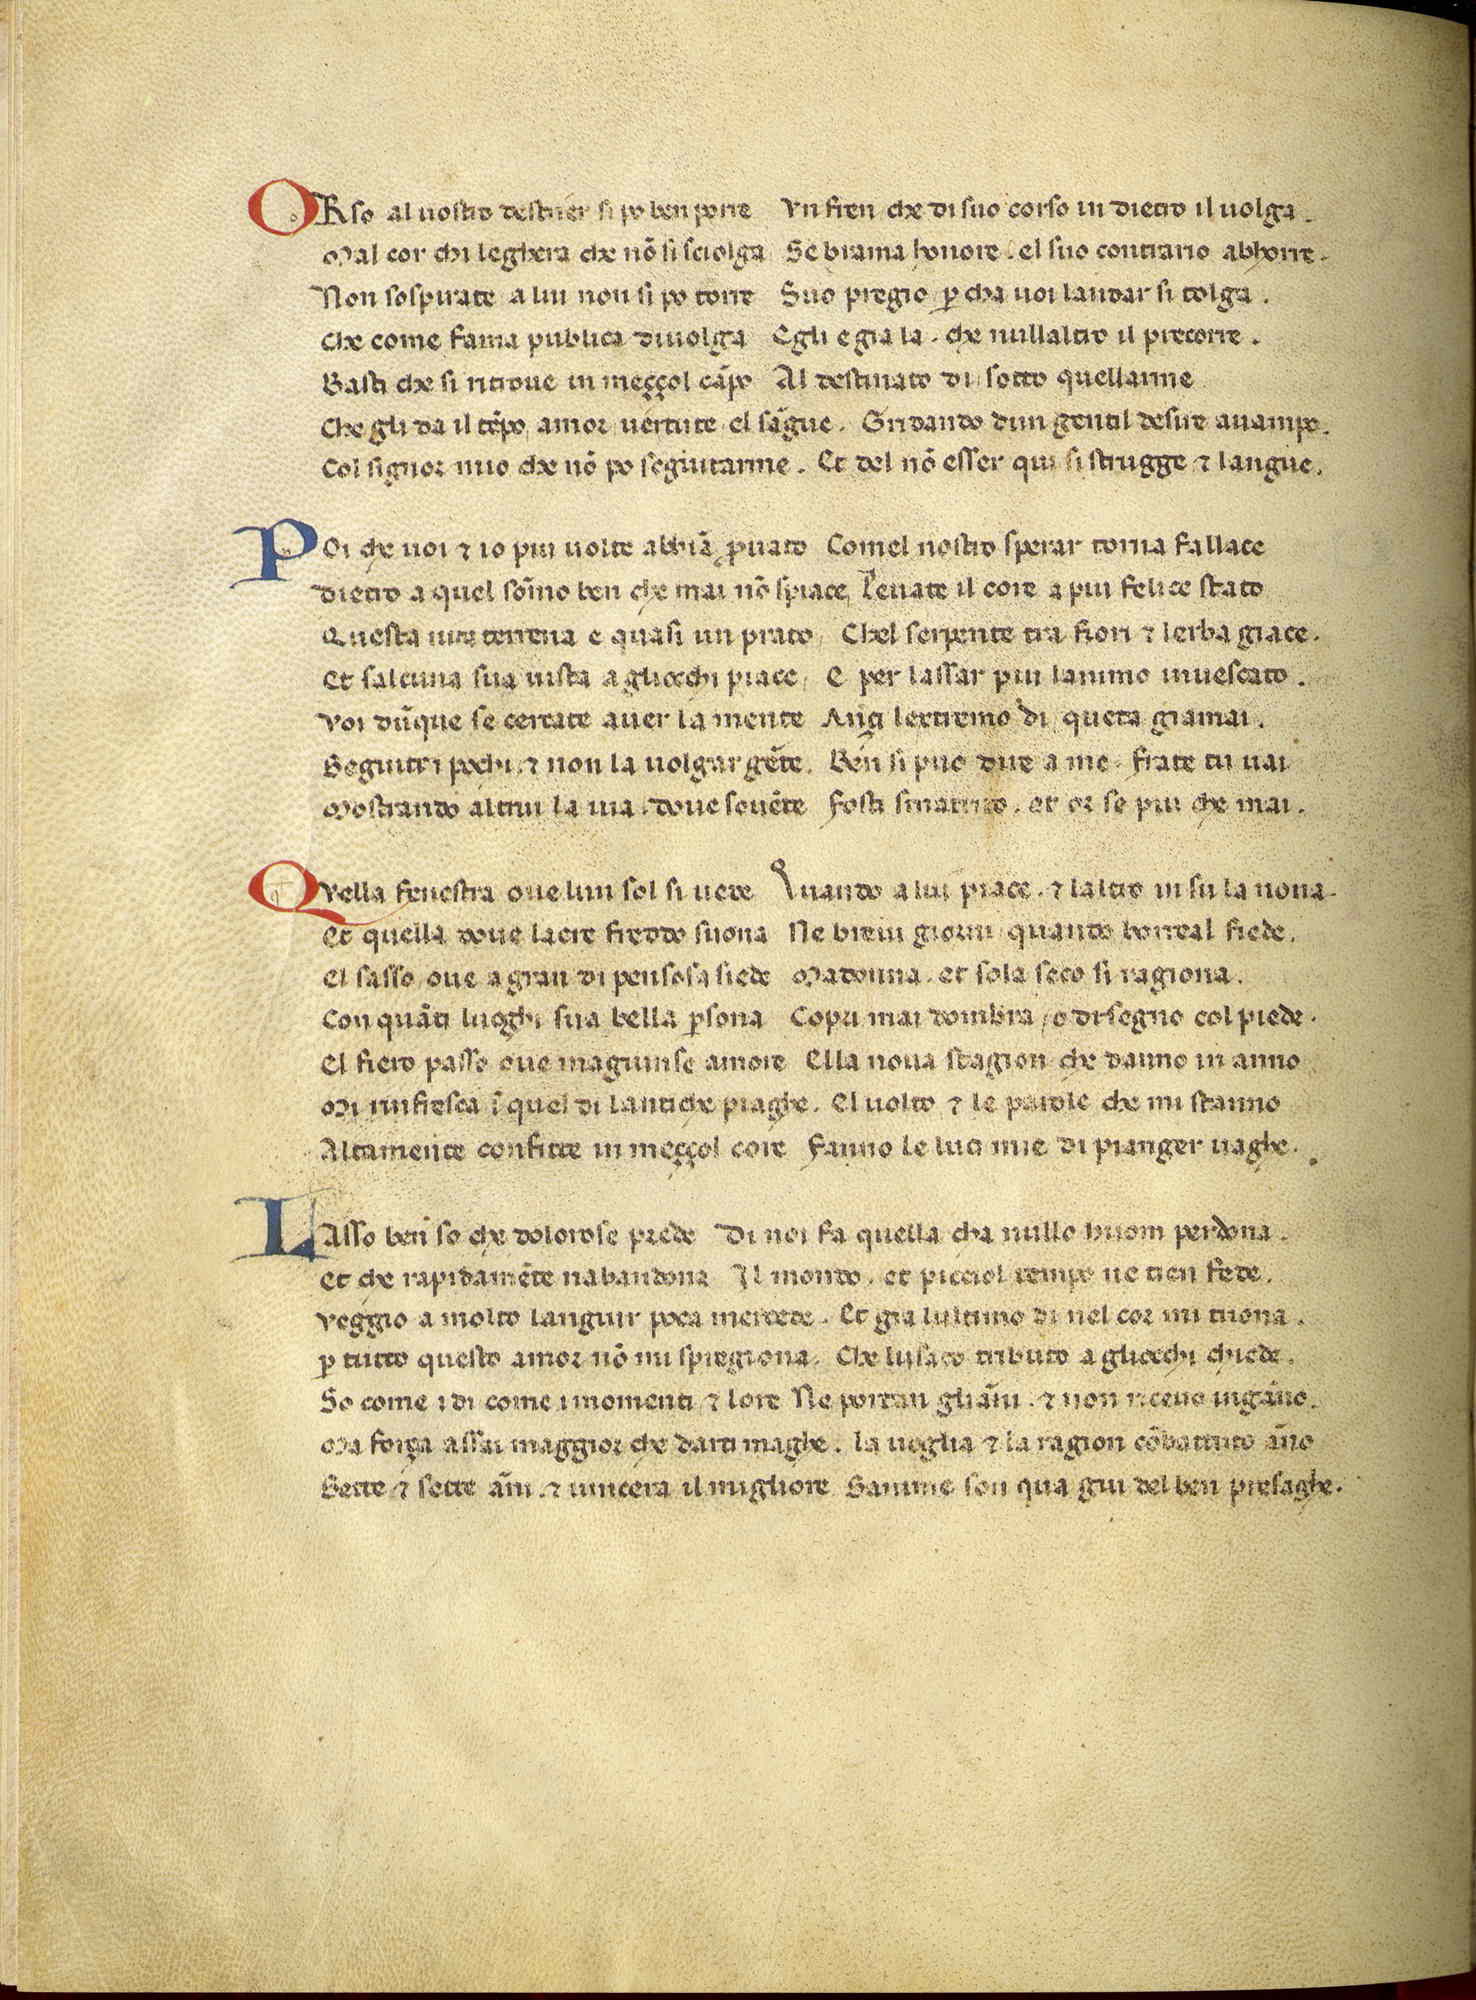 ORso al nostro destrier si po ben porre Vn fren che di suo corso in dietro il uolga.
Mal cor chi leghera che nō si sciolga Se brama honore. el suo contrario abhorre.
Non sospirate a lui non si po torre Suo pregio ꝑ cha uoi landar si tolga.
Che come fama publica diuolga Egli e gia la. che nullaltro il precorre.
Basti che si ritroue in meççol cāpo Al destinato di sotto quellarme
Che gli da il tēpo amor uertute el sāgue. Gridando dun gentil desire auampo.
Col signor mio che nō po seguitarme. Et del nō esser qui si strugge ⁊ langue.
POi che uoi ⁊ io piu uolte abbiā ꝓuato Comel nostro sperar torna fallace
Dietro a quel sōmo ben che mai nō spiace Leuate il core a piu felice stato
Questa uita terrena e quasi un prato Chel serpente tra fiori ⁊ lerba giace.
Et salcuna sua uista agliocchi piace E per lassar piu lanimo inuescato.
Voi dūque se cercate auer la mente Anci lextremo di queta giamai.
Seguite i pochi. ⁊ non la uolgar gēte. Ben si puo dire a me. frate tu uai
Mostrando altrui la uia. doue souēte Fosti smarrito. et or se piu che mai.
QVella fenestra oue lun sol si uede Quando a lui piace. ⁊ laltro in su la nona.
Et quella doue laere freddo suona Ne breui giorni quando borreal fiede.
El sasso oue a gran di pensosa siede Madonna. et sola seco si ragiona.
Con quāti luoghi sua bella ꝑsona Copri mai dombra o disegno col piede.
El fiero passo oue magiunse amore Ella noua stagion che danno in anno
Mi rinfresca ī quel di lantiche piaghe. El uolto ⁊ le parole che mi stanno
Altamente confitte in meççol core Fanno le luci mie di pianger uaghe.
LAsso ben so che dolorose prede Di noi fa quella cha nullo huom perdona.
Et che rapidamēte nabandona Il mondo. et picciol tempo ne tien fede.
Veggio a molto languir poca mercede. Et gia lultimo di nel cor mi tuona.
ꝑ tutto questo amor nō mi spregiona. Che lusato tributo agliocchi chiede.
So come i di come i momenti ⁊ lore Ne portan gliāni. ⁊ non riceuo ingāno.
Ma força assai maggior che darti maghe. La uoglia ⁊ la ragion cōbattuto āno
Sette ⁊ sette āni. ⁊ uincera il migliore Sanime son qua giu del ben presaghe.